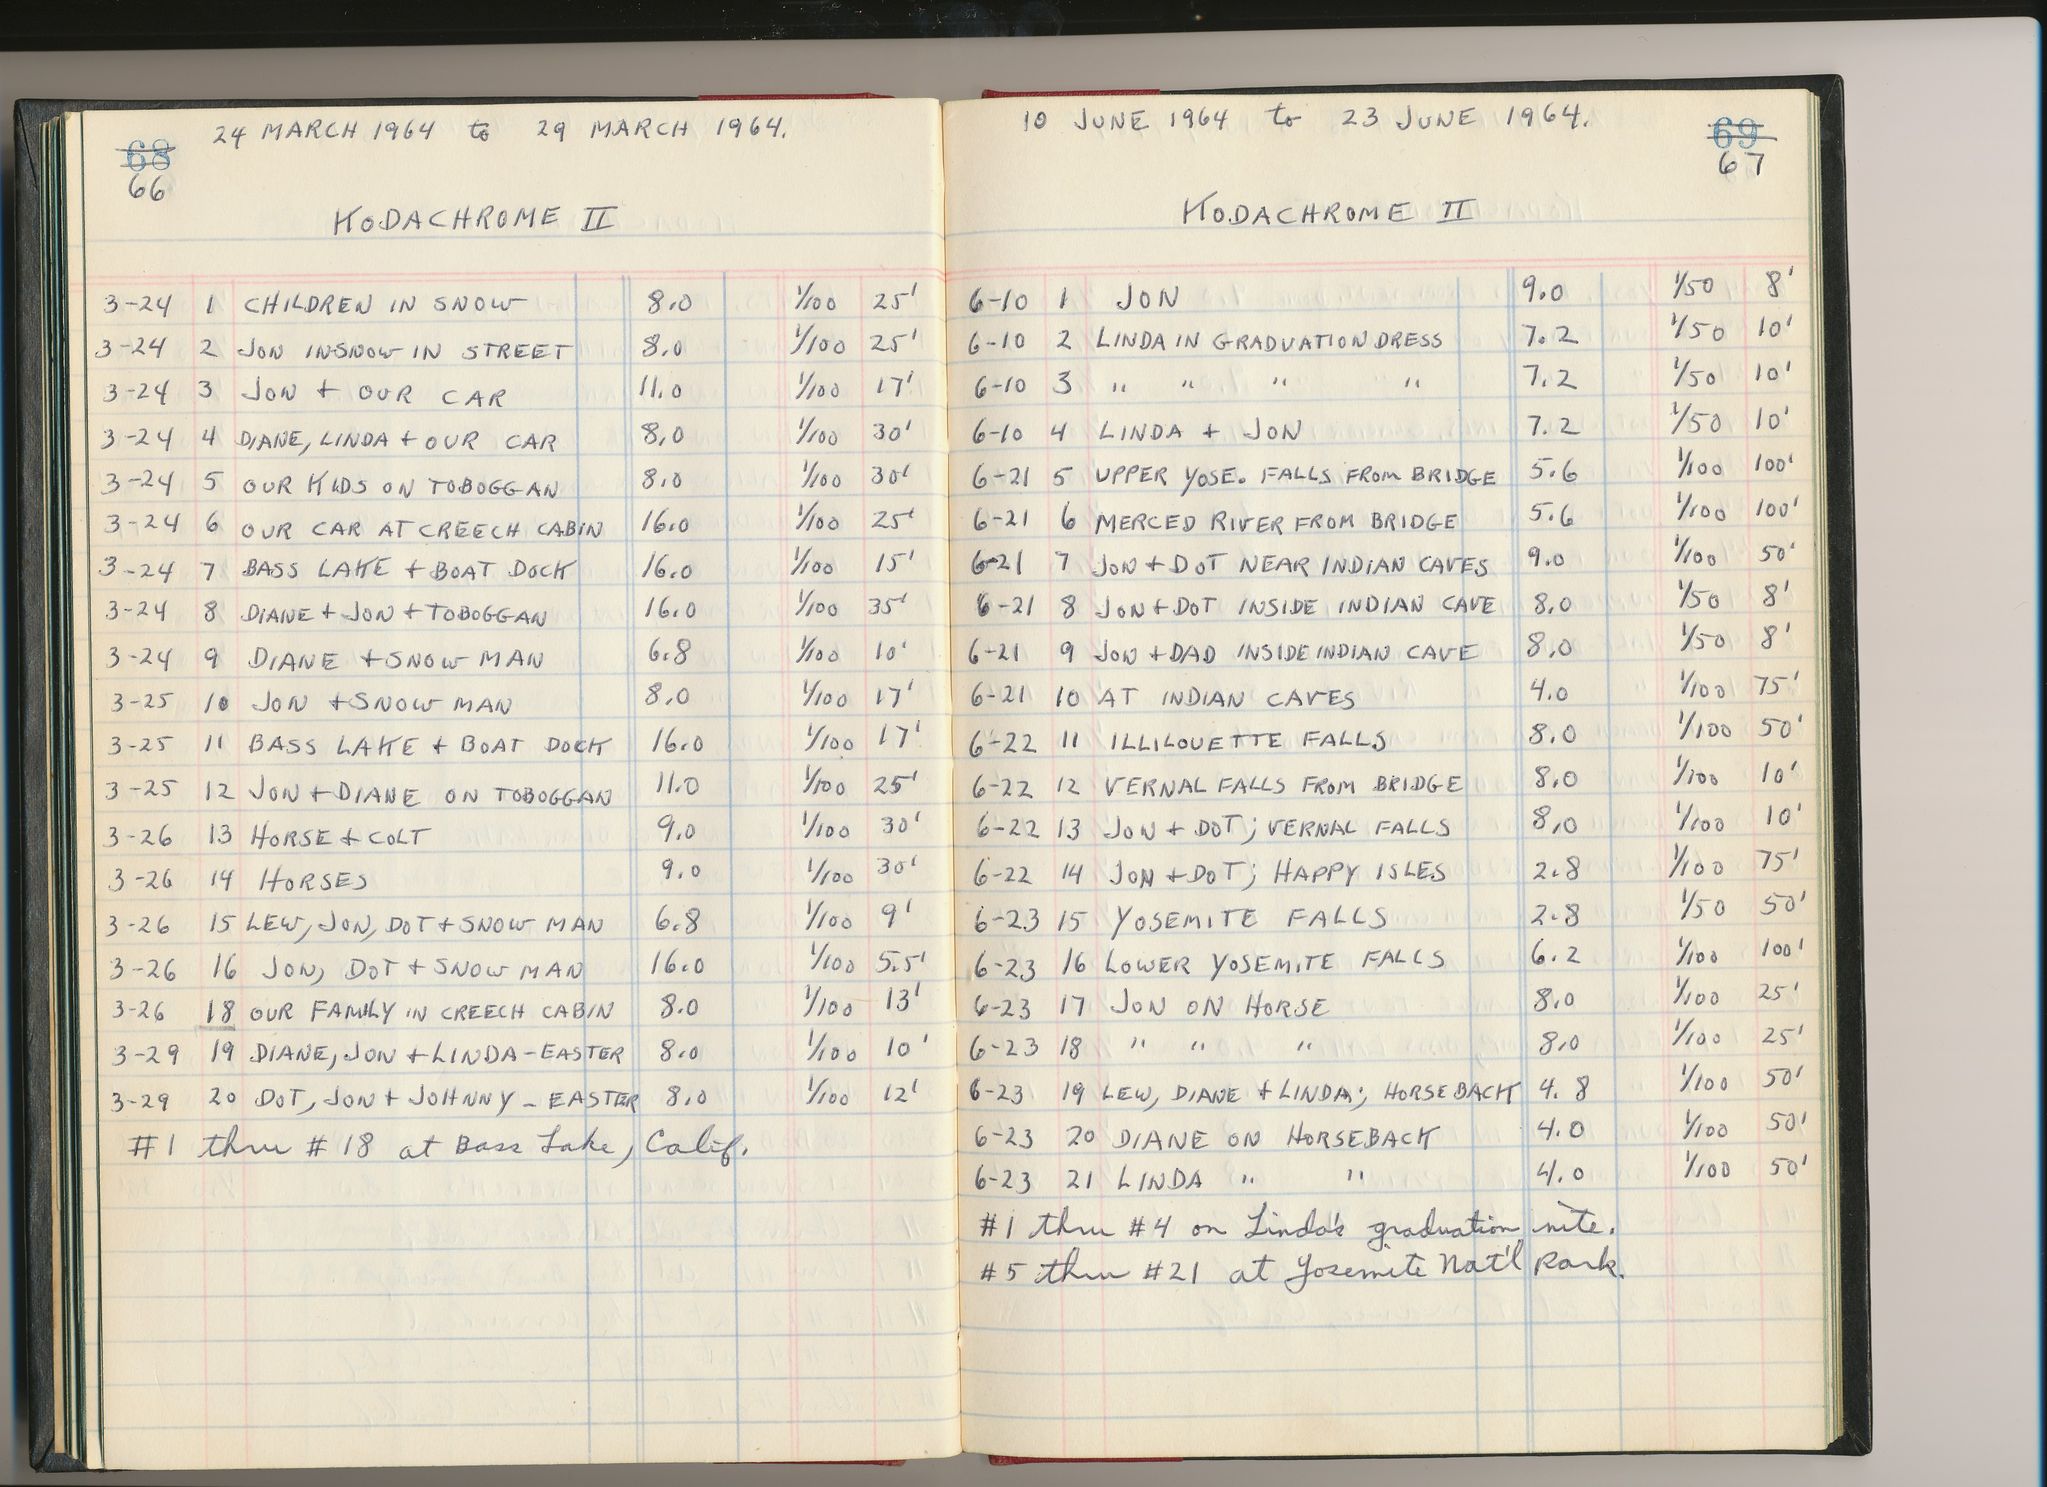 24 MARCH 1964 to 29 MARCH 1964.
68
66
KODACHROME II
3-24 1 CHILDREN IN SNOW 8.0 1/100 25'
3-24 2 JON IN SNOW IN STREET 8.0 1/100 25'
3-24 3 JON + OUR CAR 11.0 1/100 17'
3-24 4 DIANE, LINDA + OUR CAR 8.0 1/100 30'
3-24 5 OUR KIDS ON TOBOGGAN 8.0 1/100 30'
3-24 6 OUR CAR AT CREECH CABIN 16.0 1/100 25'
3-24 7 BASS LAKE + BOAT DOCK 16.0 1/100 15'
3-24 8 DIANE + JON + TOBOGGAN 16.0 1/100 35'
3-24 9 DIANE + SNOW MAN 6.8 1/100 10'
3-25 10 JON + SNOW MAN 8.0 1/100 17'
3-25 11 BASS LAKE + BOAT DOCK 16.0 1/100 17'
3-25 12 JON + DIANE ON TOBOGGAN 11.0 1/100 25'
3-26 13 HORSE + COLT 9.0 1/100 30'
3-26 14 HORSES 9.0 1/100 30'
3-26 15 LEW, JON, DOT + SNOW MAN 6.8 1/100 9'
3-26 16 JON, DOT + SNOW MAN 16.0 1/100 5.5'
3-26 18 OUR FAMILY IN CREECH CABIN 8.0 1/100 13'
3-29 19 DIANE, JON + LINDA - EASTER 8.0 1/100 10'
3-29 20 DOT, JON + JOHNNY - EASTER 8.0 1/100 12'
#1 thru #18 at Bass Lake, Calif.
10 JUNE 1964 to 23 JUNE 1964.
69
67
KODACHROME II
6-10 1 JON 9.0 1/50 8'
6-10 2 LINDA IN GRADUATION DRESS 7.2 1/50 10'
6-10 3 " " " " 7.2 1/50 10'
6-10 4 LINDA + JON 7.2 1/50 10'
6-21 5 UPPER YOSE. FALLS FROM BRIDGE 5.6 1/100 100'
6-21 6 MERCED RIVER FROM BRIDGE 5.6 1/100 100'
6-21 7 JON + DOT NEAR INDIAN CAVES 9.0 1/100 50'
6-21 8 JON + DOT INSIDE INDIAN CAVE 8.0 1/50 8'
6-21 9 JON + DAD INSIDE INDIAN CAVE 8.0 1/50 8'
6-21 10 AT INDIAN CAVES 4.0 1/100 75'
6-22 11 ILLILOUETTE FALLS 8.0 1/100 50'
6-22 12 VERNAL FALLS FROM BRIDGE 8.0 1/100 10'
6-22 13 JON + DOT; VERNAL FALLS 8.0 1/100 10'
6-22 14 JON + DOT; HAPPY ISLES 2.8 1/100 75'
6-23 15 YOSEMITE FALLS 2.8 1/50 50'
6-23 16 LOWER YOSEMITE FALLS 6.2 1/100 100'
6-23 17 JON ON HORSE 8.0 1/100 25'
6-23 18 " " " 8.0 1/100 25'
6-23 19 LEW, DIANE + LINDA; HORSEBACK 4.8 1/100 50'
6-23 20 DIANE ON HORSEBACK 4.0 1/100 50'
6-23 21 LINDA " " 4.0 1/100 50'
#1 thru #4 on Linda's graduation nite.
#5 thru #21 at Yosemite Nat'l Park.